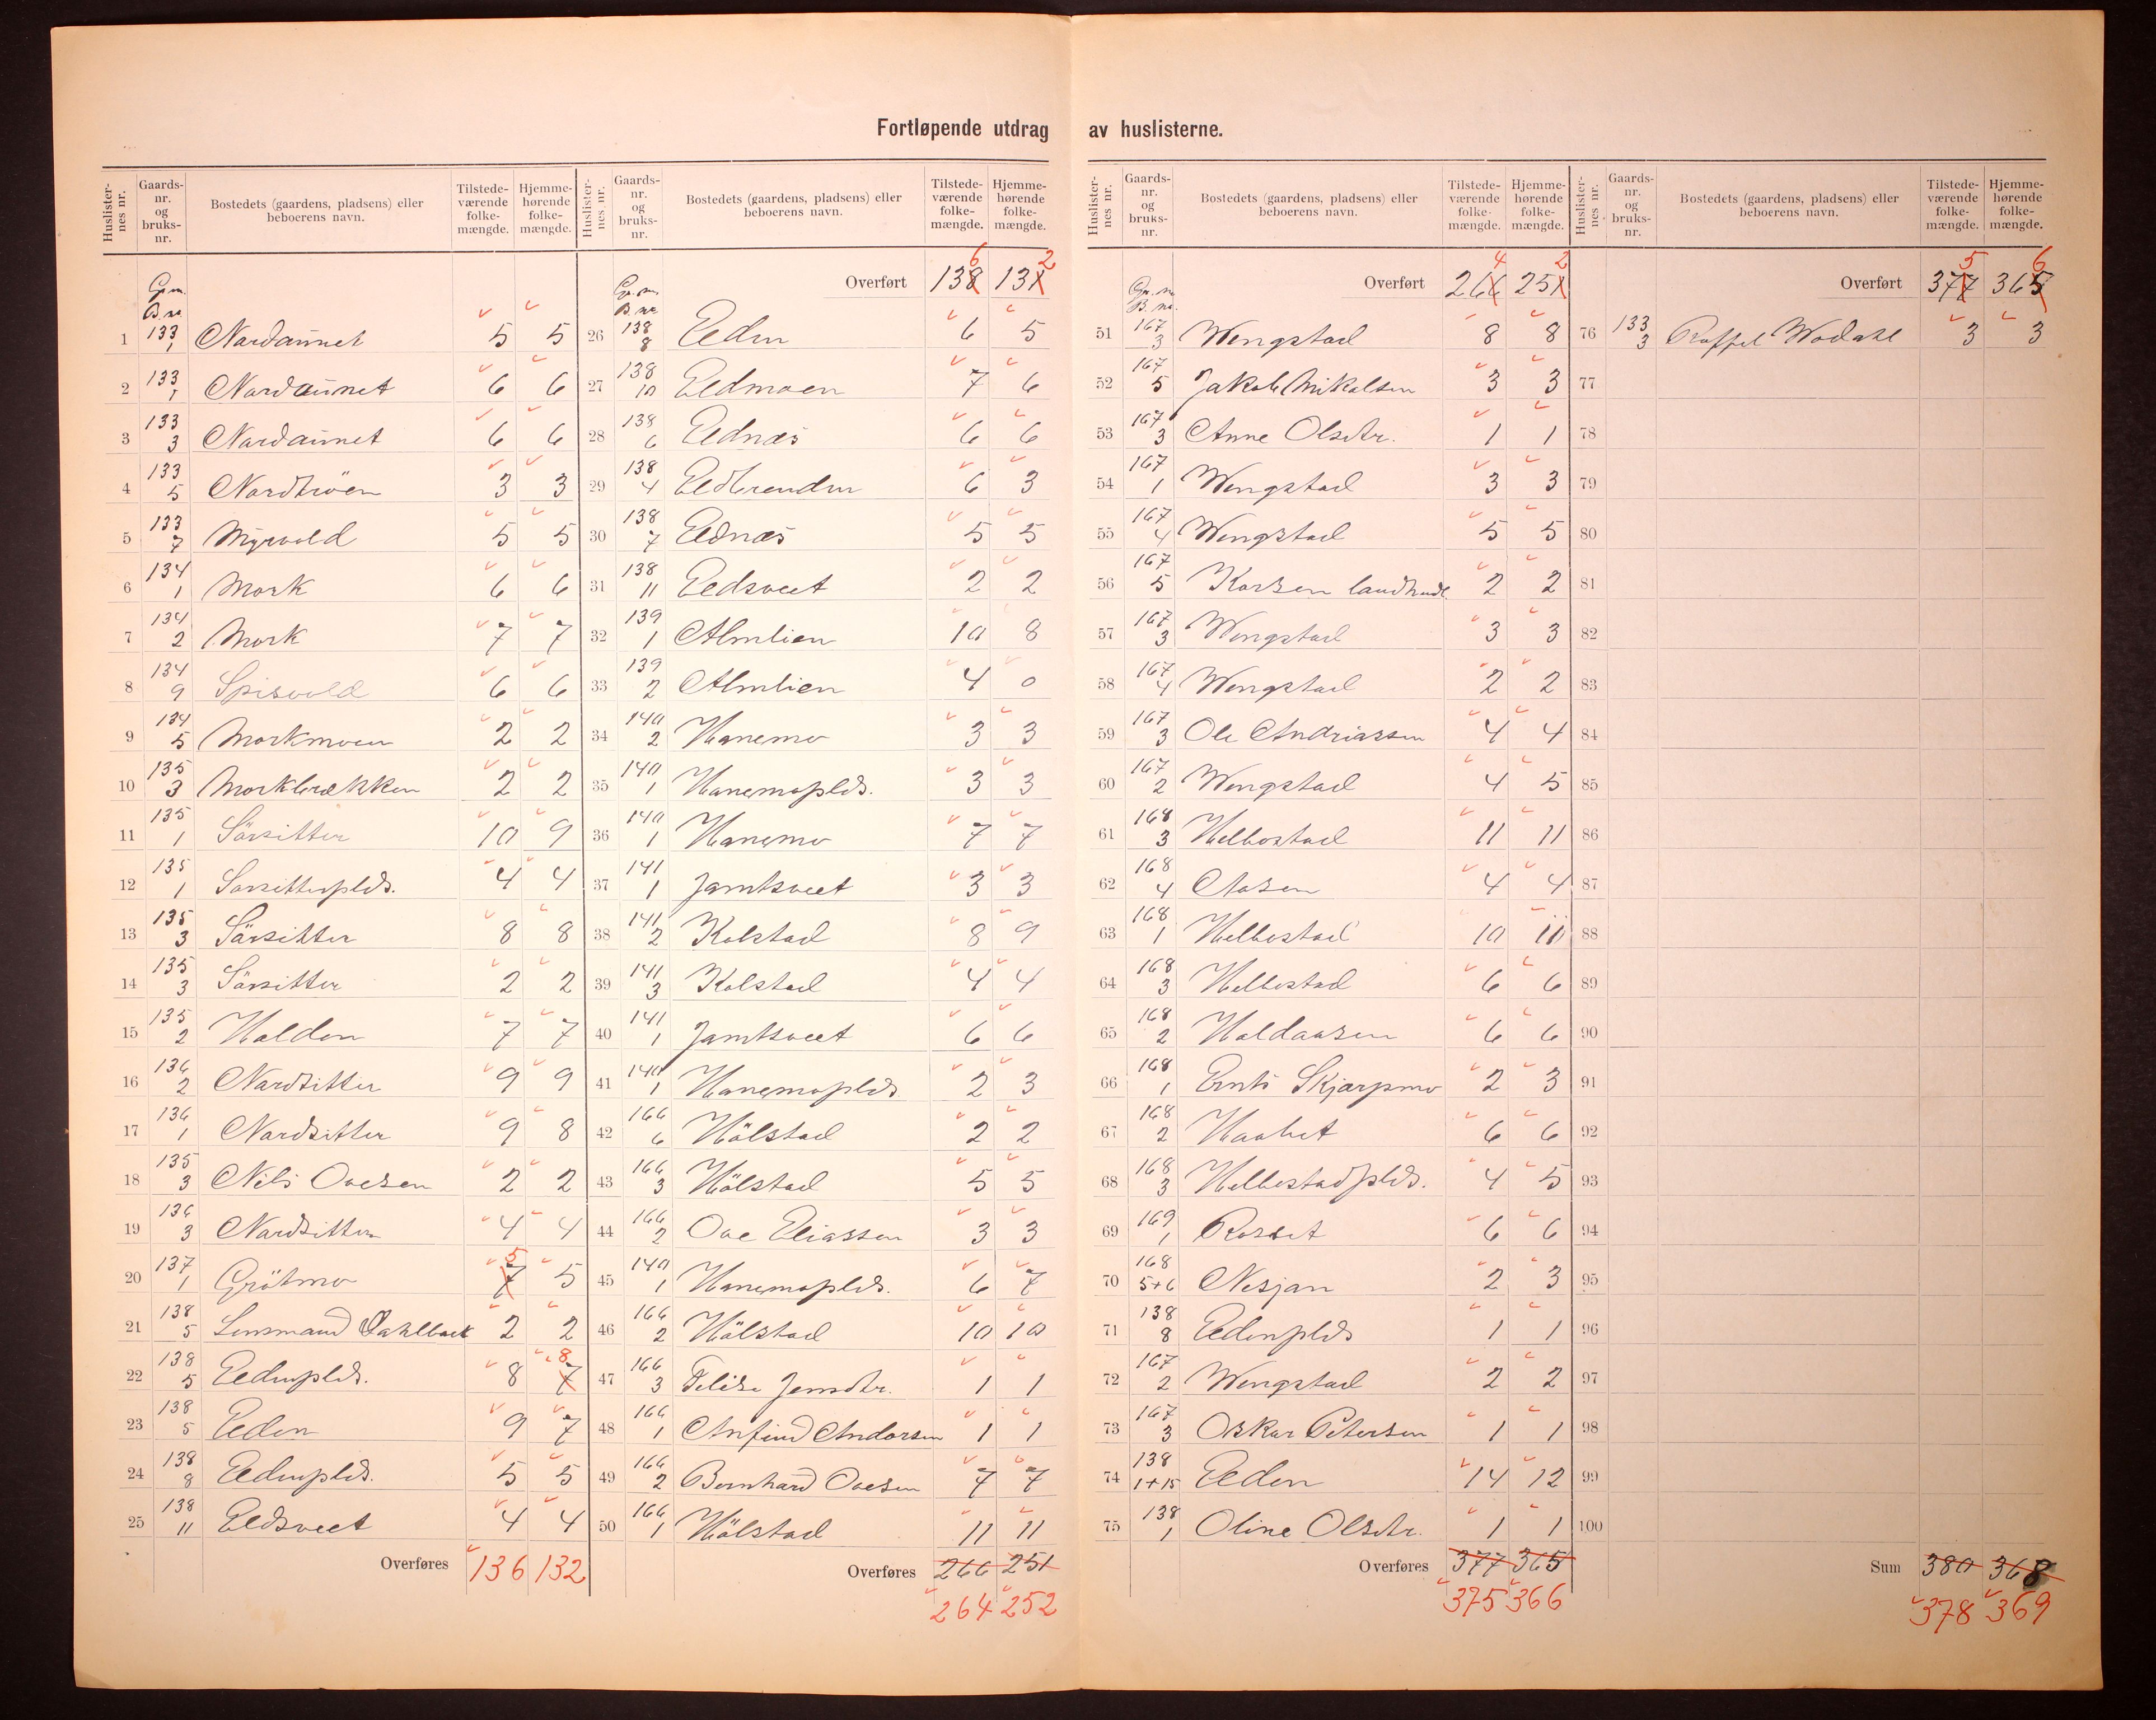 Fortløpende utdrag av huslisterne.
Huslister-nes nr. Gaards-nr. og bruks-nr. Bostedets (gaardens, pladsens) eller beboerens navn. Tilstede-værende folke-mængde. Hjemme-hørende folke-mængde.
Gr. nr. B. nr.
1 133 1 Nordaunet 5 5
2 133 1 Nordaunet 6 6
3 133 3 Nordaunet 6 6
4 133 5 Nordtröen 3 3
5 133 7 Myrvold 5 5
6 134 1 Mork 6 6
7 134 2 Mork 7 7
8 134 9 Spisvold 6 6
9 134 5 Morkmoen 2 2
10 135 3 Morkbrækken 2 2
11 135 1 Sörsitter 10 9
12 135 1 Sörsitterplds. 4 4
13 135 3 Sörsitter 8 8
14 135 3 Sörsitter 2 2
15 135 2 Halden 7 7
16 136 2 Nordsitter 9 9
17 136 1 Nordsitter 9 8
18 135 3 Nils Ovesen 2 2
19 136 3 Nordsitter 4 4
20 137 1 Grötmo 7 5 5
21 138 5 Lensmand Dahlback 2 2
22 138 5 Eedenplds. 8 7 8
23 138 5 Eeden 9 7
24 138 8 Eedenplds. 5 5
25 138 11 Eedsveet 4 4
Overføres 136 132
Huslister-nes nr. Gaards-nr. og bruks-nr. Bostedets (gaardens, pladsens) eller beboerens navn. Tilstede-værende folke-mængde. Hjemme-hørende folke-mængde.
Overført 138 6 131 2
Gr. nr. B. nr.
26 138 8 Eeden 6 5
27 138 10 Eedmoen 7 6
28 138 6 Eednæs 6 6
29 138 4 6 3
30 138 7 Eednæs 5 5
31 138 11 Eedsveet 2 2
32 139 1 Almlien 10 8
33 139 2 Almlien 4 0
34 140 2 Hanemo 3 3
35 140 1 Hanemoplds. 3 3
36 140 1 Hanemo 7 7
37 141 1 Jamtsveet 3 3
38 141 2 Kolstad 8 9
39 141 3 Kolstad 4 4
40 141 1 Jamtsveet 6 6
41 140 1 Hanemoplds. 2 3
42 166 6 Hölstad 2 2
43 166 3 Hölstad 5 5
44 166 2 Ove Eliassen 3 3
45 140 1 Hanemoplds. 6 7
46 166 2 Hölstad 10 10
47 166 3 Jensdtr. 1 1
48 166 1 Anfind Andorsen 1 1
49 166 2 Bernhard Ovesen 7 7
50 166 1 Hölstad 11 11
Overføres 266 251
264 252
Huslister-nes nr. Gaards-nr. og bruks-nr. Bostedets (gaardens, pladsens) eller beboerens navn. Tilstede-værende folke-mængde. Hjemme-hørende folke-mængde.
Overført 266 4 251 2
Gr. nr. B. nr.
51 167 3 Wengstad 8 8
52 167 5 Jakob Mikalsen 3 3
53 167 3 Anne Olsdtr. 1 1
54 167 1 Wengstad 3 3
55 167 4 Wengstad 5 5
56 167 5 Korsen landhndl. 2 2
57 167 3 Wengstad 3 3
58 167 4 Wengstad 2 2
59 167 3 Ole Andriassen 4 4
60 167 2 Wengstad 4 5
61 168 3 Helbostad 11 11
62 168 4 Aasen 4 4
63 168 1 Helbostad 10 11
64 168 3 Helbostad 6 6
65 168 2 Haldaasen 6 6
66 168 1 Ernts Skjærpmo 2 3
67 168 2 6 6
68 168 3 Helbostadplds. 4 5
69 169 1 Rosset 6 6
70 168 5+6 Nesjan 2 3
71 138 8 Eedenplds 1 1
72 167 2 Wengstad 2 2
73 167 3 Oskar Petersen 1 1
74 138 1+15 Eeden 14 12
75 138 1 Oline Olsdtr. 1 1
Overføres 377 365
375 366
Huslister-nes nr. Gaards-nr. og bruks-nr. Bostedets (gaardens, pladsens) eller beboerens navn. Tilstede-værende folke-mængde. Hjemme-hørende folke-mængde.
Overført 377 5 365 6
76 133 3 Wodahl 3 3
77
78
79
80
81
82
83
84
85
86
87
88
89
90
91
92
93
94
95
96
97
98
99
100
Sum 380 368
378 369